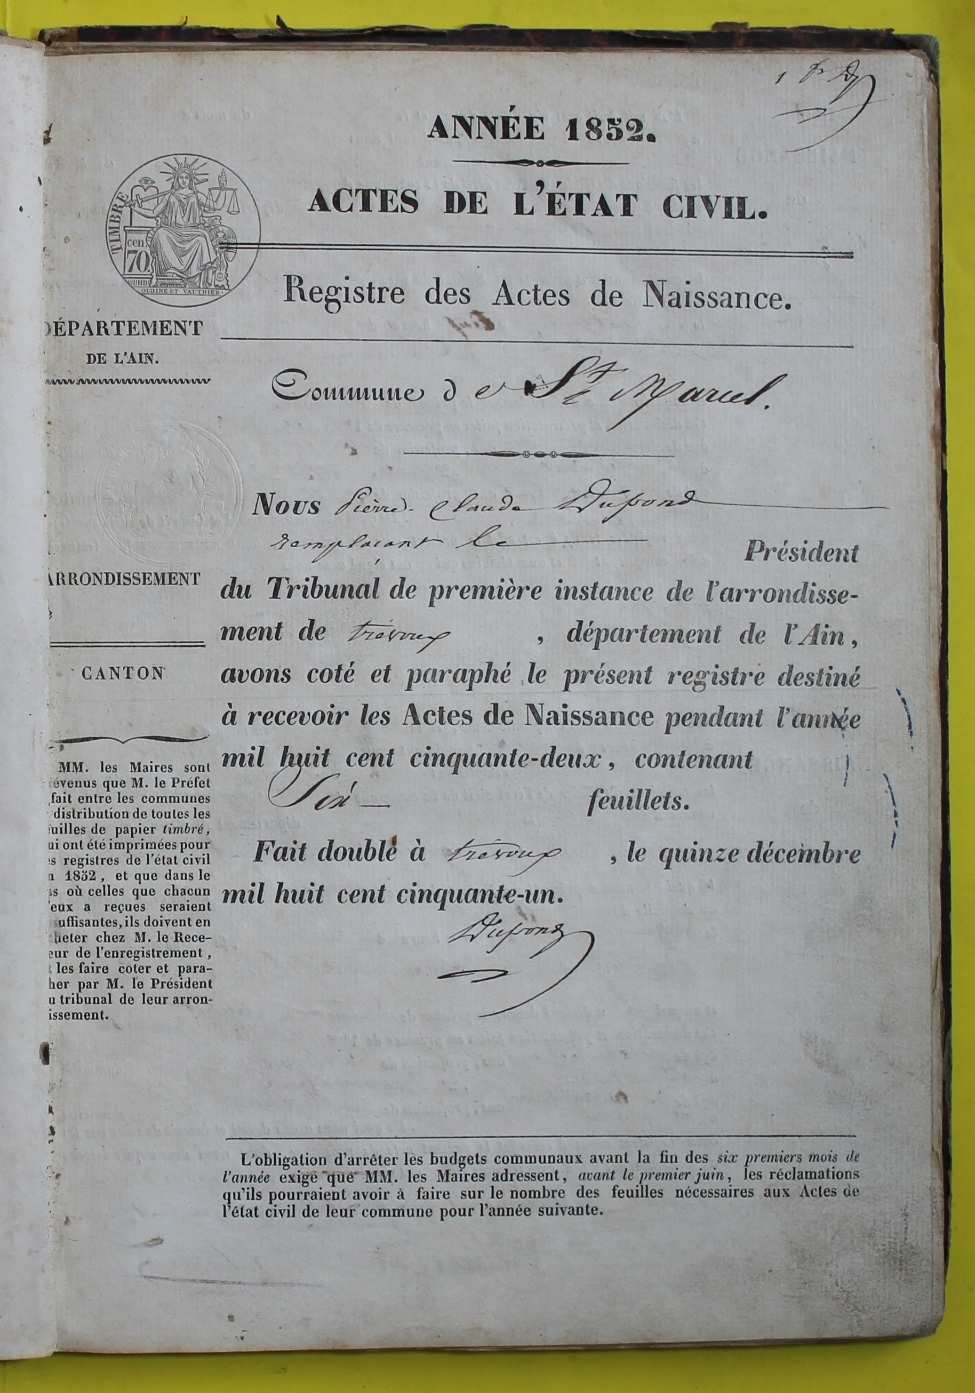 1 f D
ANNÉE 1852.
ACTES DE L'ÉTAT CIVIL.
TIMBRE
cen
70
Registre des Actes de Naissance.
DÉPARTEMENT
DE L'AIN.
Commune d e St Marcel.
Nous Pierre Claude Dupond
remplaçant le Président
ARRONDISSEMENT
du Tribunal de première instance de l'arrondisse-
ment de trevoux , département de l'Ain,
CANTON
avons coté et paraphé le présent registre destiné
à recevoir les Actes de Naissance pendant l'année
mil huit cent cinquante-deux, contenant
Six feuillets.
Fait double à trevoux , le quinze décembre
mil huit cent cinquante-un.
Dupond
MM. les Maires sont
évenus que M. le Préfet
fait entre les communes
distribution de toutes les
uilles de papier timbré,
ui ont été imprimées pour
es registres de l'état civil
n 1852, et que dans le
s où celles que chacun
eux a reçues seraient
uffisantes, ils doivent en
heter chez M. le Rece-
eur de l'enregistrement,
les faire coter et para-
her par M. le Président
u tribunal de leur arron-
issement.
L'obligation d'arrêter les budgets communaux avant la fin des six premiers mois de
l'année exige que MM. les Maires adressent, avant le premier juin, les réclamations
qu'ils pourraient avoir à faire sur le nombre des feuilles nécessaires aux Actes de
l'état civil de leur commune pour l'année suivante.